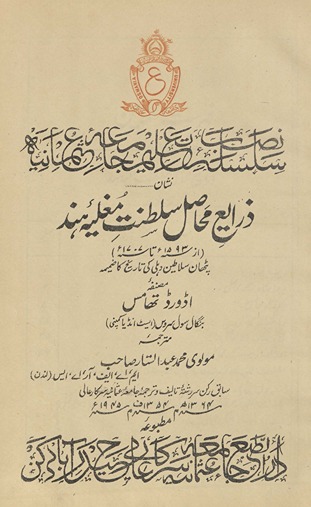 سلسلہ نصاب تعلیم جامعہ عثمانیہ
نشان
ذرایع محاصل سلطنت مغلیۂ ہند
(از ۱۵۹۳ء تا ۱۷۰۷ء)
پٹھان سلاطین دہلی کی تاریخ کا ضمیمہ
مصنفہ
اڈورڈ تھامس
بنگال سول سرویس (ایسٹ انڈیا کمپنی)
مترجمہ
مولوی محمد عبد الستار صاحب
ایم، اے، ایف، آر، اے، ایس (لندن)
سابق رکن سررشتۂ تالیف و ترجمہ جامعۂ عثمانیہ سرکار عالی
۱۳۶۴ھ م ۱۳۵۴ ف م ۱۹۴۵ء
مطبوعہ
دار الطبع جامعہ عثمانیہ سرکار عالی حیدرآباد دکن